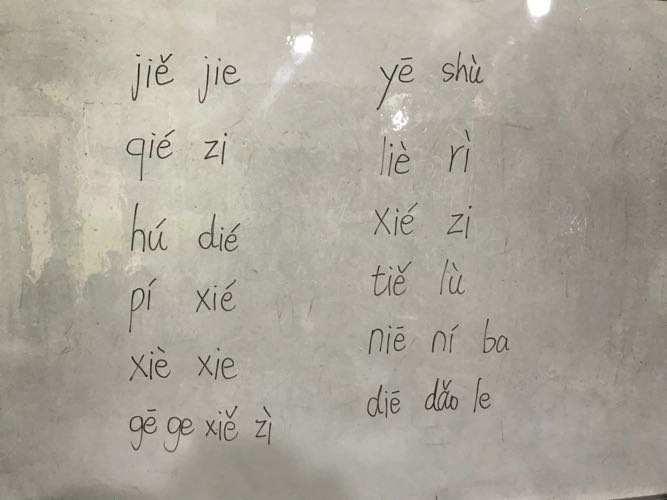 jiě jie
qié zi
hú dié
pí xié
xiè xie
gē ge xiě zì
yē shù
liè rì
xié zi
tiě lù
niē ní ba
diē dǎo le